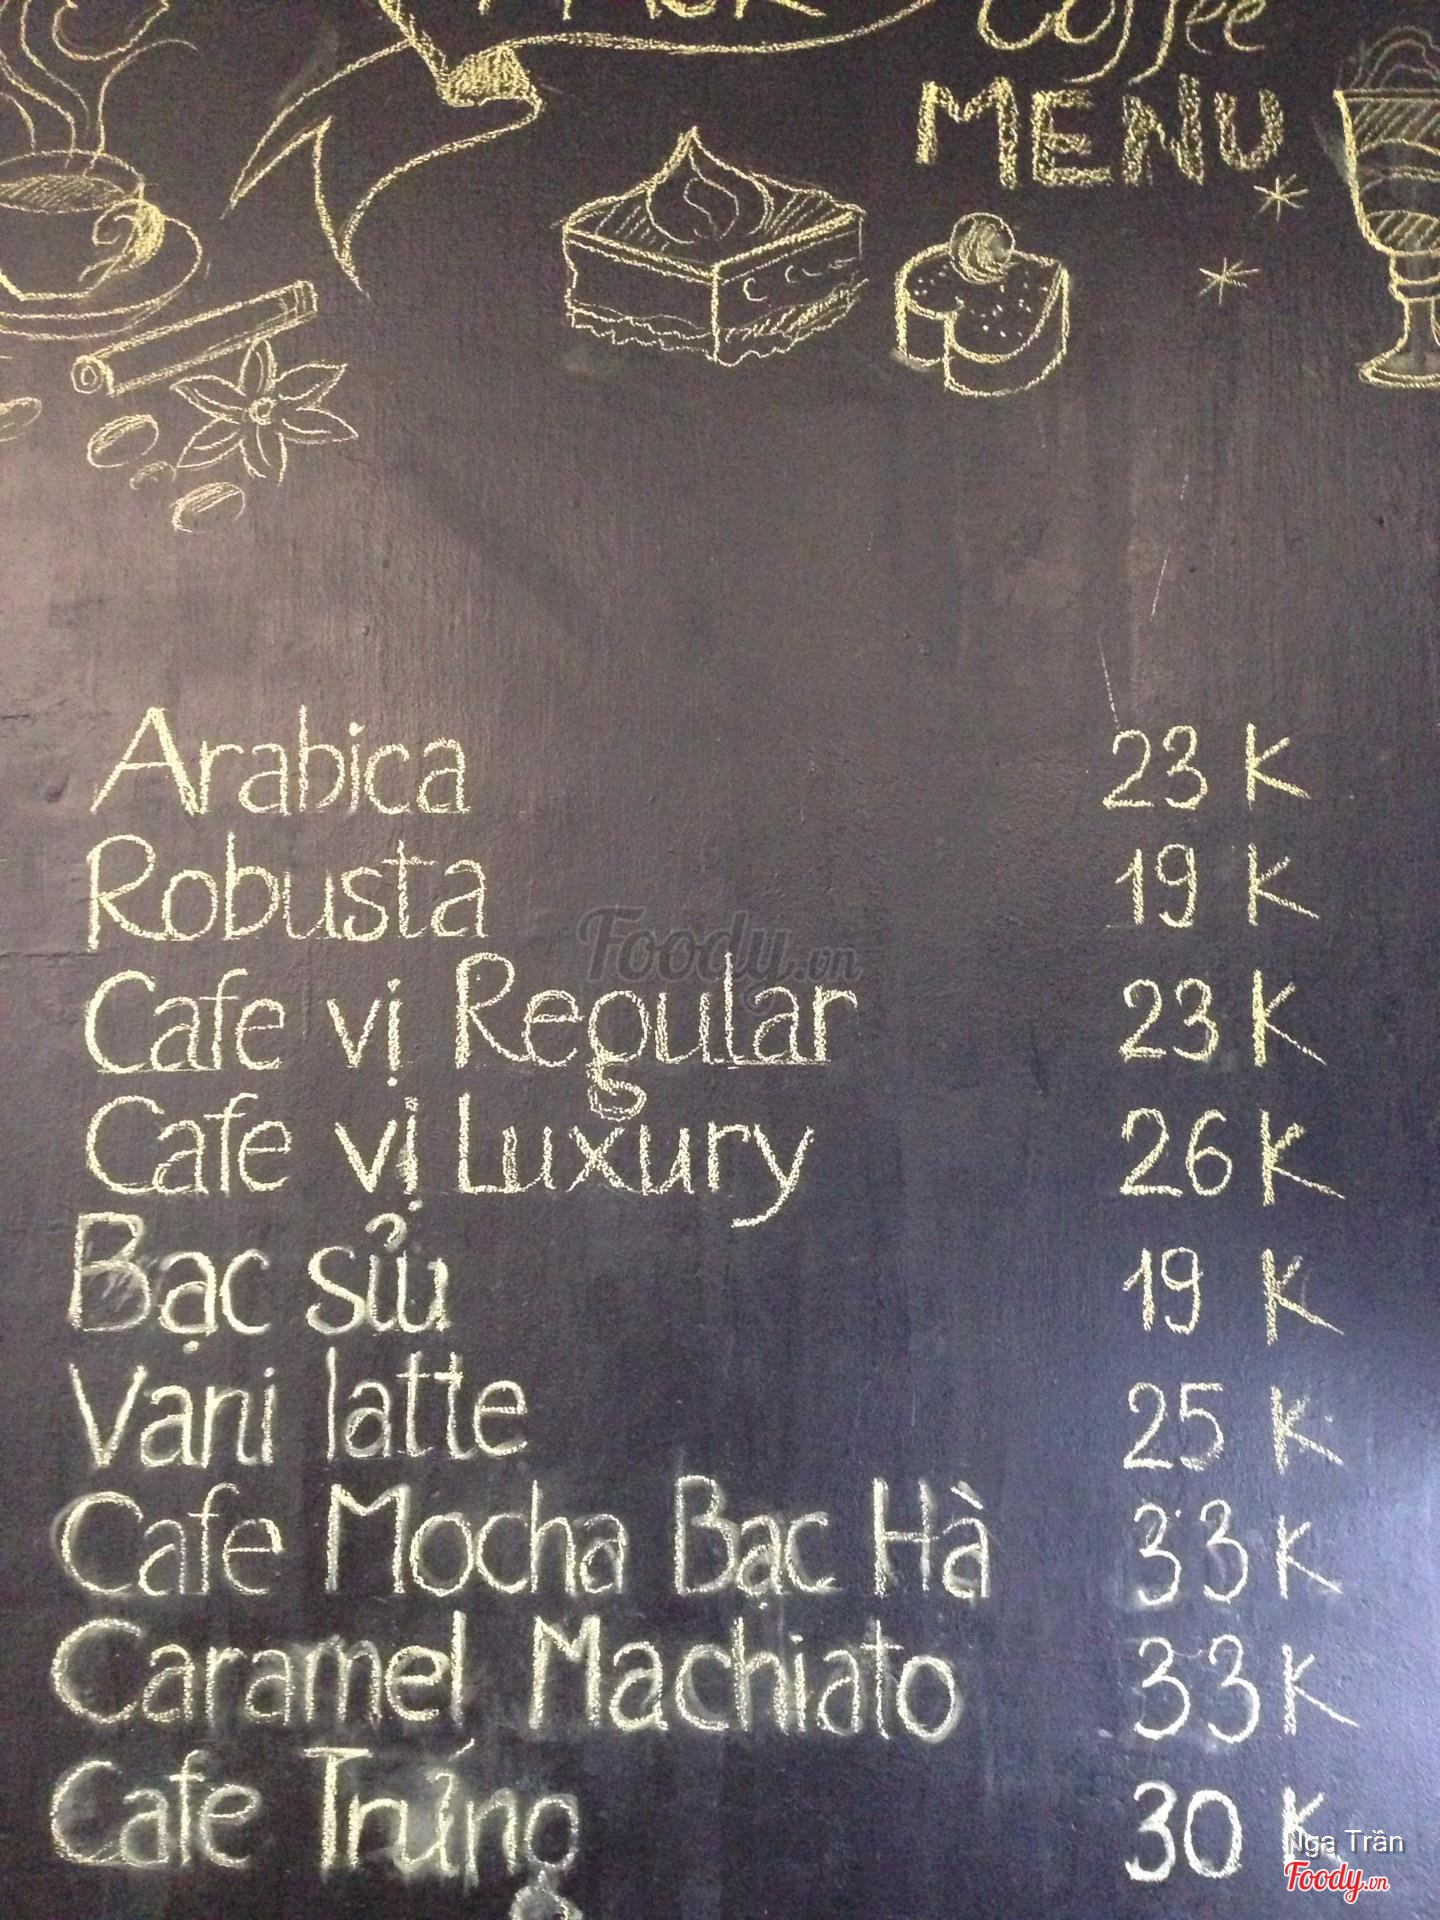 Coffee
MENU
Arabica 23 K
Robusta 19 K
Foody.vn
Cafe vị Regular 23 K
Cafe vị Luxury 26 K
Bạc sủu 19 K
Vani latte 25 K
Cafe Mocha Bạc Hà 33 K
Caramel Machiato 33 K
Cafe Trứng 30 K
Nga Trần
Foody.vn